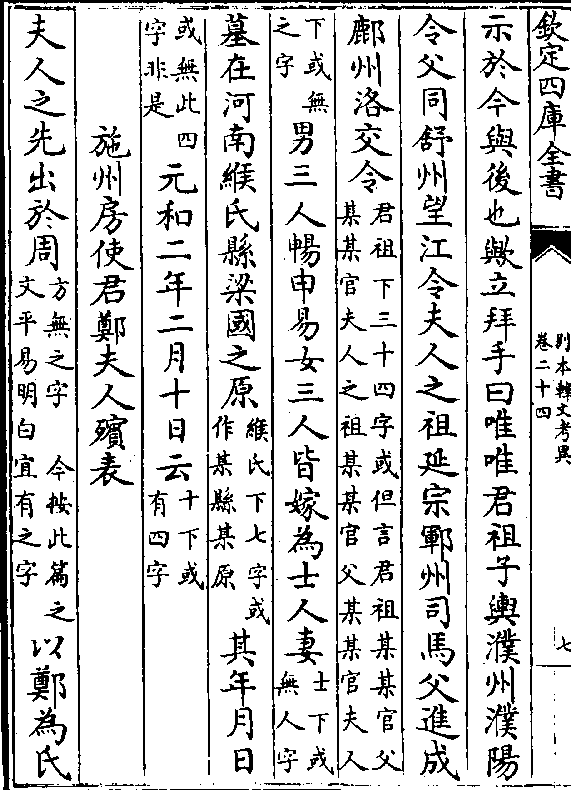 欽定四庫全書
別本韓文考異
卷二十四
七
示於今與後也歟立拜手曰唯唯君祖子輿濮州濮陽
令父同舒州望江令夫人之祖延宗鄆州司馬父進成
鄜州洛交令君祖下三十四字或但言君祖某某官父某某官夫人之祖某某官父某某官夫人
下或無之字男三人暢申易女三人皆嫁為士人妻士下或無人字
墓在河南緱氏縣梁國之原緱氏下七字或作某縣某原其年月日
或無此四字非是元和二年二月十日云十下或有四字
施州房使君鄭夫人殯表
夫人之先出於周方無之字今按此篇之文平易明白宜有之字以鄭為氏